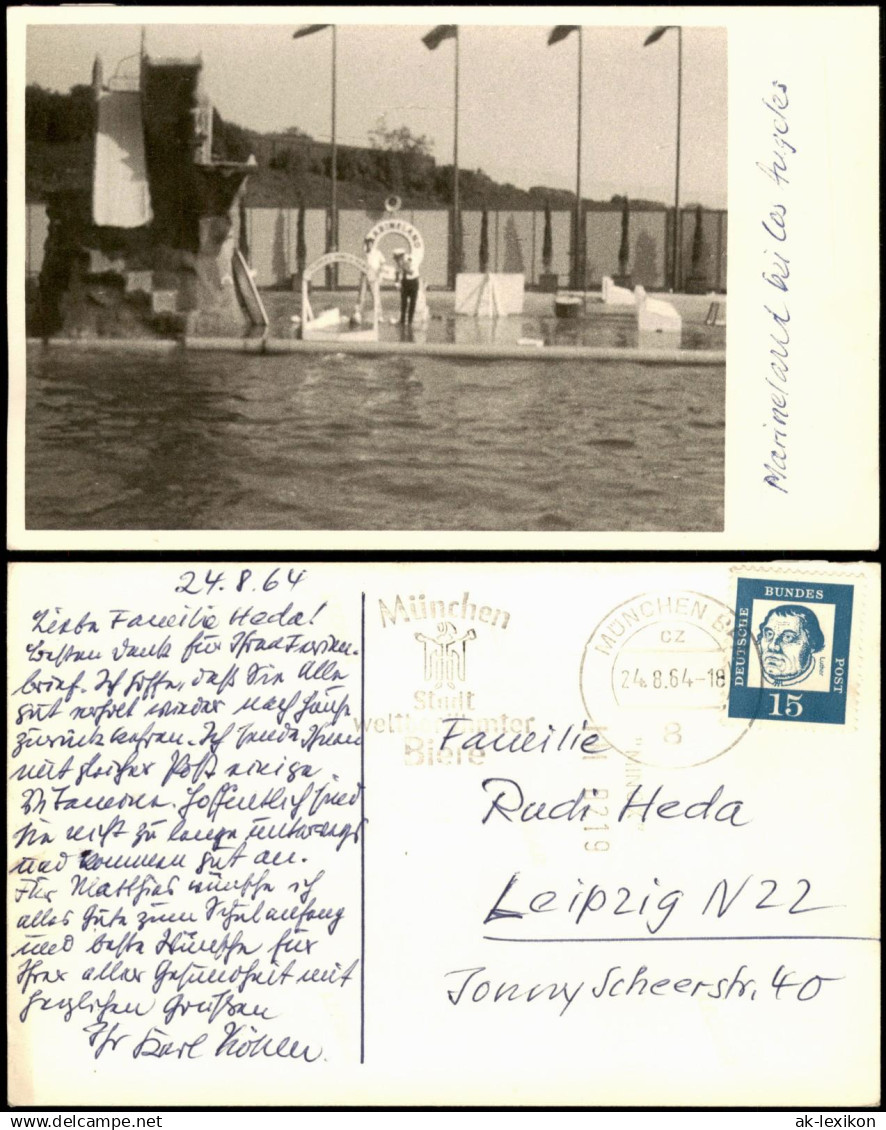 MARINELAND
Marineland bei Los Angeles
24.8.64
Liebe Familie Heda!
Besten Dank für Ihren Ferien-
brief. Ich hoffe, daß Sie alle
gut erholt wieder nach Hause
zurückkehren. Ich sende Ihnen
mit gleicher Post einige
Vitaminen. Hoffentlich sind
sie nicht zu lange unterwegs
und kommen gut an.
Für Matthias wünsche ich
alles Gute zum Schulanfang
und beste Wünsche für
Ihrer aller Gesundheit mit
herzlichen Grüßen
Ihr Karl Köhler.
München
Stadt
weltberühmter
Biere
MÜNCHEN
CZ
24.8.64-18
8
DEUTSCHE BUNDES POST
Luther
15
Familie
Rudi Heda
Leipzig N22
Jonny Scheerstr. 40
ak-lexikon